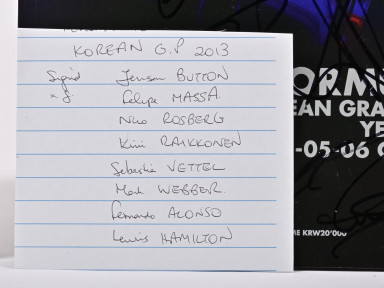 KOREAN G.P 2013
Signed Jenson BUTTON
x 8. Felipe MASSA.
Nico ROSBERG
Kimi RAIKKONEN
Sebastian VETTEL
Mark WEBBER.
Fernando ALONSO
Lewis HAMILTON
ORMU
EAN GRA
YE
-05-06 O
ME KRW20'000